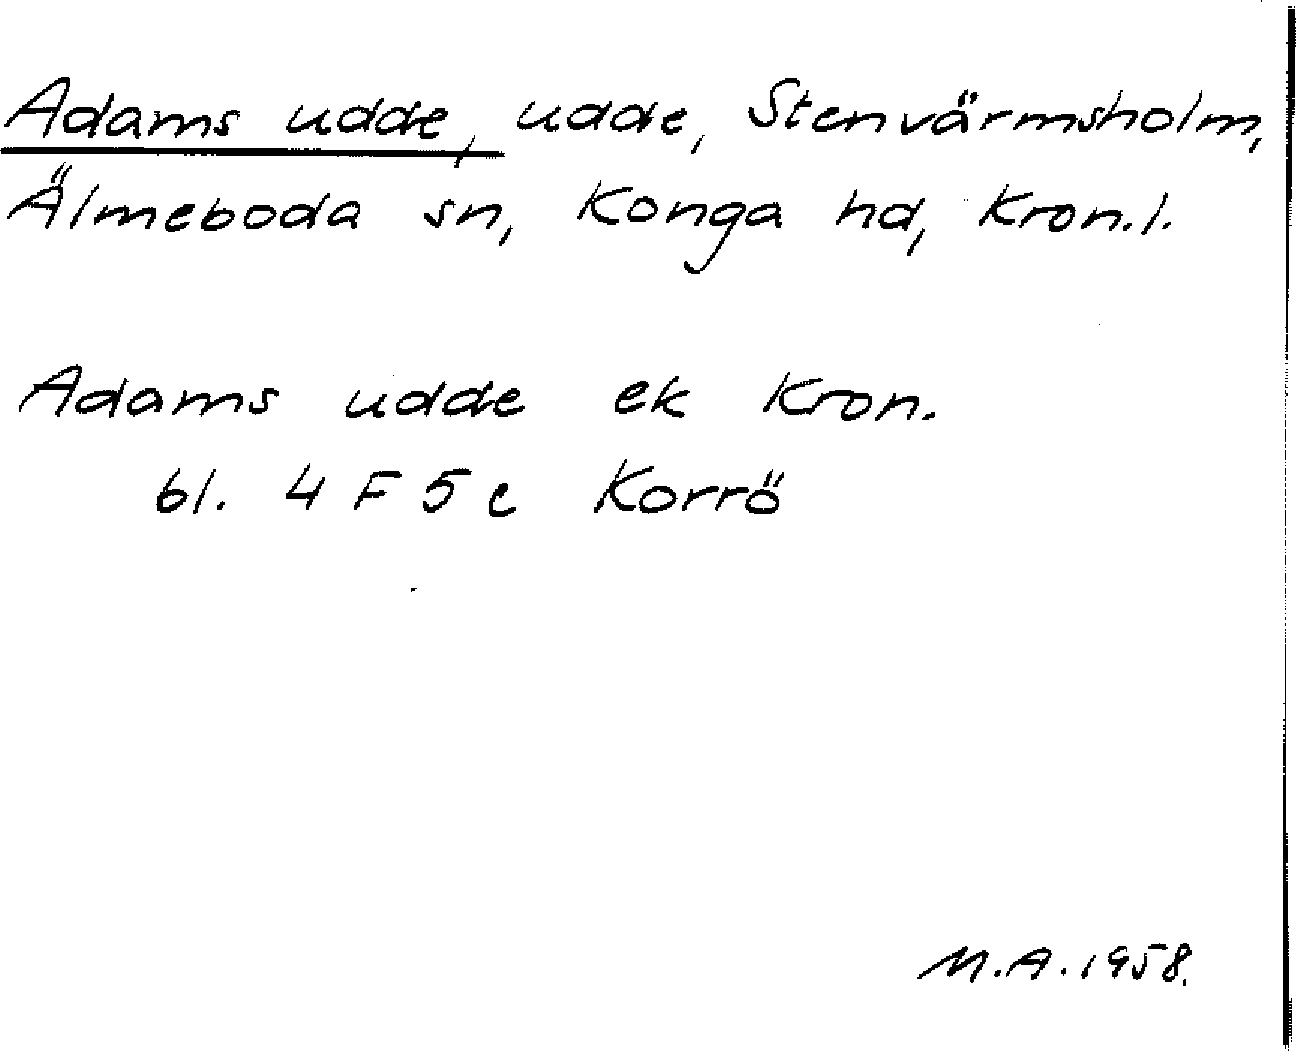 Adams udde, udde, Stenvärmsholm,
Älmeboda sn, Konga hd, Kron.l.
Adams udde ek Kron.
bl. 4 F 5 c Korrö
M.A. 1958.